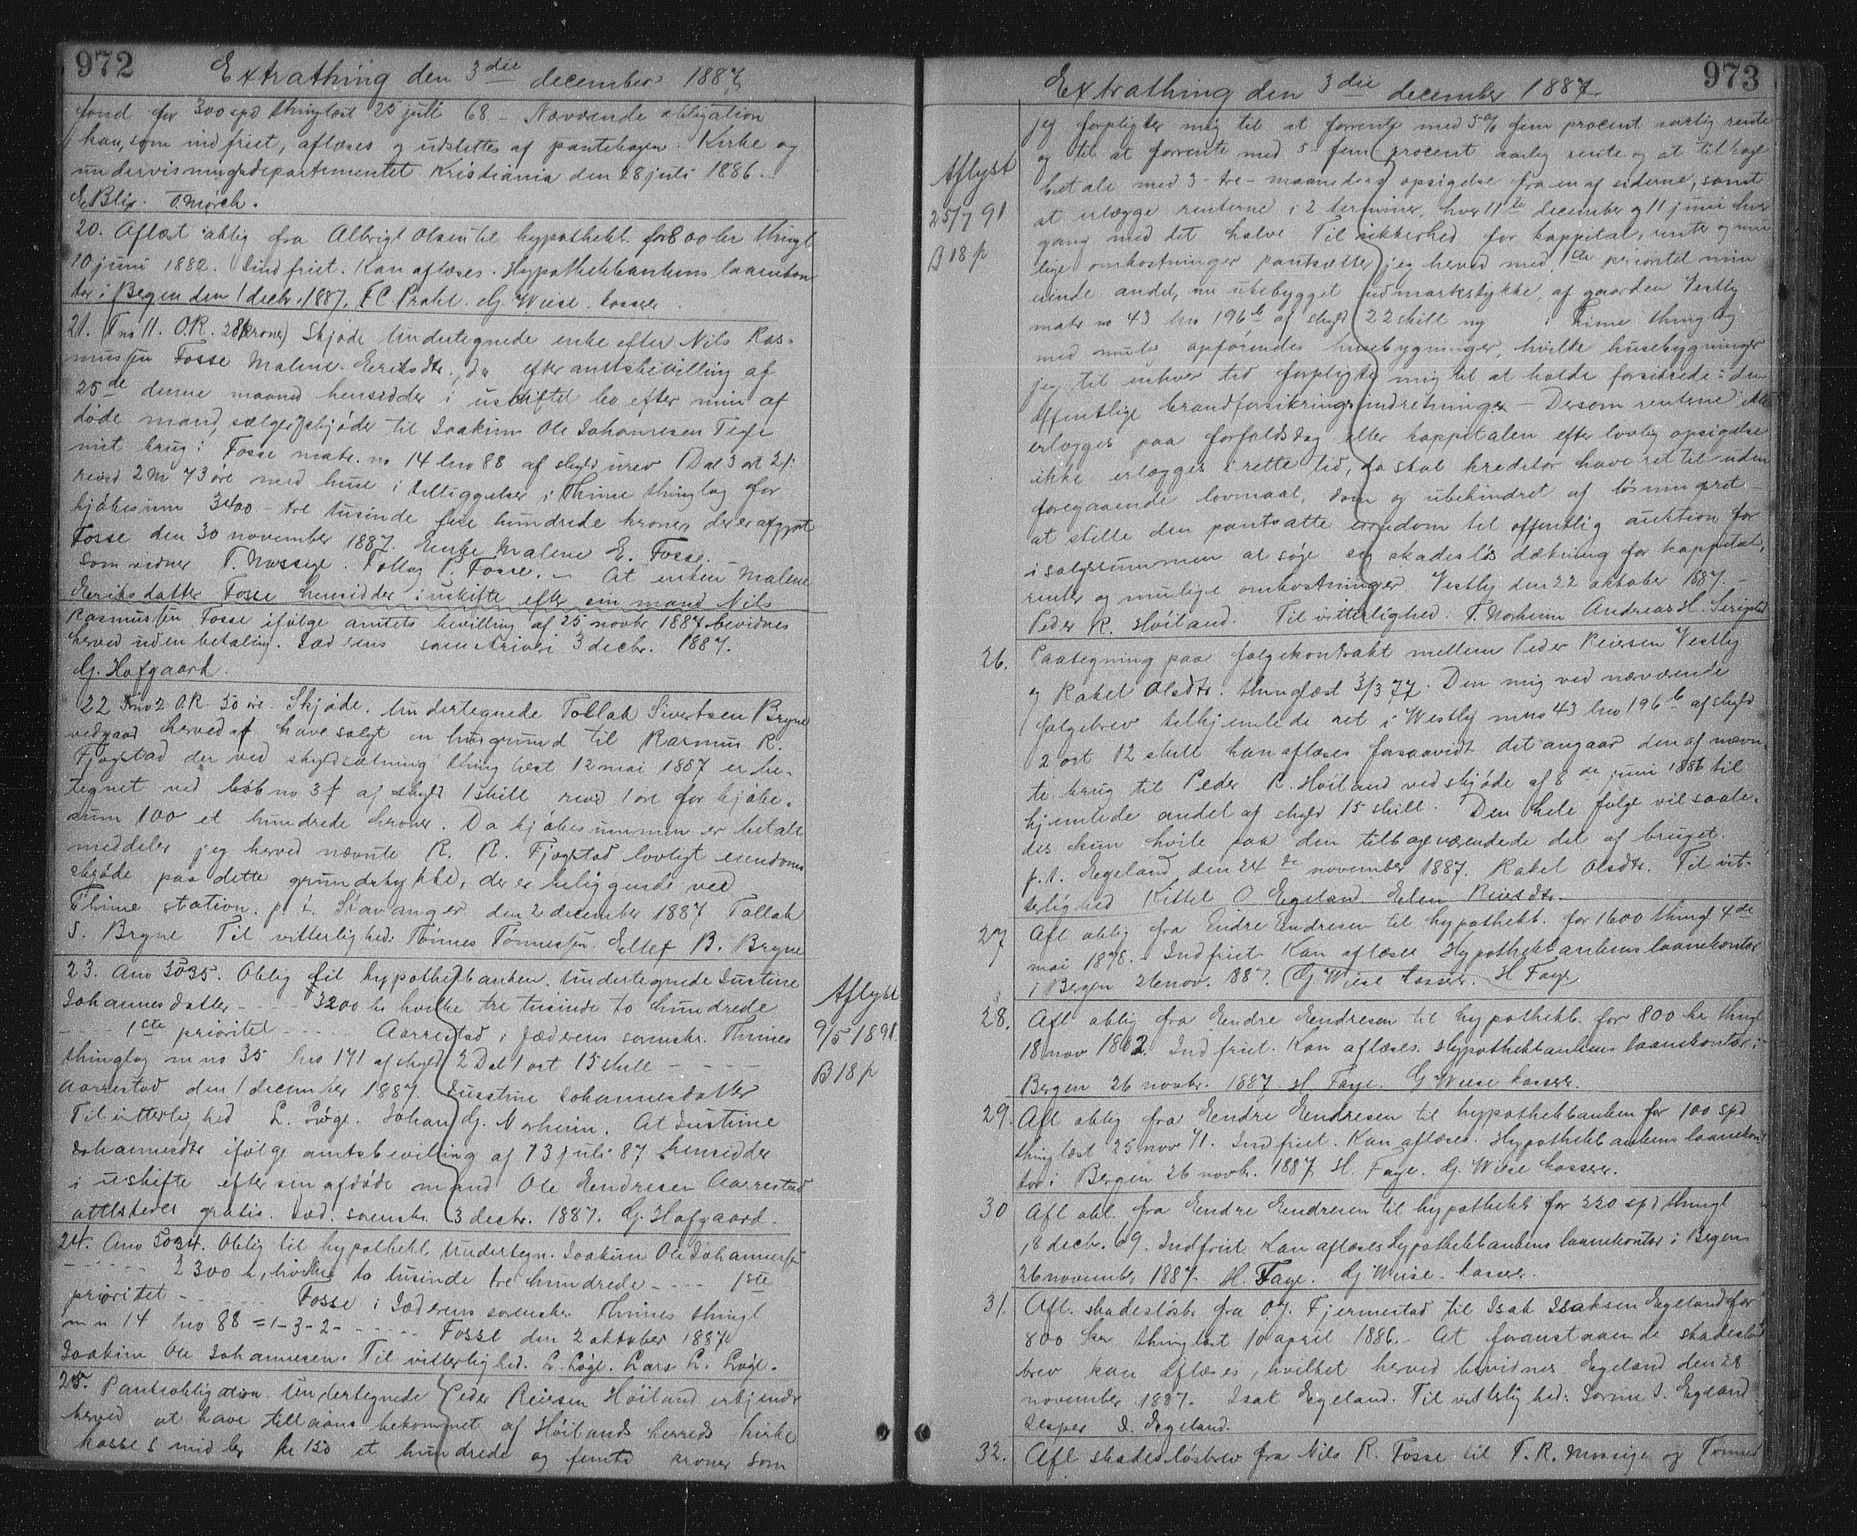 972
Extrathing den 3die december 1887
fond for 300 spd thinglæst 25 juli 68. – Nærværende obligation
kan, som indfriet, aflæses og udslettes af pantebogen. Kirke og
undervisningsdepartementet Kristiania den 28 juli 1886.
E. Blix. O. Mørch.
20. Aflæst oblig fra Albrigt Olsen til hypothekb. for 800 kr thingl
10 juni 1882. Indfriet. Kan aflæses. Hypothekbankens laanekon
tor i Bergen den 1 decbr. 1887. F C Prahl. G. Wiese kasserer.
21. T no 11. O.R. 28 kroner) Skjøde Undertegnede enke efter Nils Ras-
mussen Fosse Malene Eriksdtr., der efter amtsbevilling af
25de denne maaned hensidder i uskiftet bo efter min af
døde mand, sælger & skjøder til Joakim Ole Johannesen Tege
mit brug i Fosse matr. no 14 lno 88 af skyld urev 1 Dal 3 ort 21:
revid 2 M 73 øre med huse i tilliggelser i Thime thinglag for
kjøbesum 3400 – tre tusinde fire hundrede kroner der er afgjort
Fosse den 30 november 1887. Enke Malene E. Fosse.
Som vidner T. Mossige. Tollag P. Fosse. – At enken Malene
Eriksdatter Fosse hensidder i uskifte efter sin mand Nils
Rasmussen Fosse ifølge amtets bevilling af 25 novbr 1887 bevidnes
herved uden betaling. Jæderens sorenskriveri 3 decbr. 1887.
G. Hofgaard.
22 T no 2 O.R. 50 øre. Skjøde. Undertegnede Tollak Sivertsen Bryne
vedgaar herved at have solgt en husgrund til Rasmus R.
Fjogstad der ved skyldsætning thinglæst 12 mai 1887 er be-
tegnet ved løb no 3f af skyld 1 skill revid 1 øre for kjøbe-
sum 100 et hundrede kroner. Da kjøbesummen er betalt
meddeler jeg herved nævnte R. R. Fjogstad lovligt eiendoms
skjøde paa dette grundstykke, der er beliggende ved
Thime station. p t. Stavanger den 2 december 1887 Tollak
S. Bryne Til vitterlighed: Tønnes Tønnessen. Ellef B. Bryne
23. Ano 5035. Oblig til hypothekbanken. Undertegnede Justine
Johannesdatter – – 3200 kr hvilke tre tusinde to hundrede
– – – – 1ste prioritet – – – – Aarrestad i Jæderens sorenskr. Thimes
thinglag m no 35 lno 171 af skyld 2 Dal 1 ort 15 skill – – – –
Aarrestad den 1 december 1887. Justine Johannesdatter
Til vitterlighed L. Løge. Johan G. Norheim. At Justine
Johannesdtr ifølge amtsbevilling af 13 juli 87 hensidder
i uskifte efter sin afdøde mand Ole Endresen Aarrestad
attesteres gratis. Jæd. sorenskr. 3 decbr. 1887. G. Hofgaard.
Aflyst
9/5 1891.
B 18 p
24. Ano 5034. Oblig til hypothekb. Undertegn. Joakim Ole Johannessen
– – – – – 2300 kr, hvilke to tusinde tre hundrede – – – 1ste
prioritet – – – – – Fosse i Jæderens sorenskr. Thimes thingl
m n 14 lno 88 = 1-3-2- – – – – – Fosse den 2 oktober 1887
Joakim Ole Johannesen. Til vitterlighed. L. Løge. Lars L. Løge.
25. Pantobligation. Undertegnede Peder Reiersen Høiland erkjender
herved at have tillaans bekommet af Høilands herreds kirke
kasses midler kr 150 et hundrede og femti kroner som
973
Extrathing den 3die december 1887
jeg forpligter mig til at forrente med 5% fem procent aarlig rente
og til at forrente med 5 fem procent aarlig rente og at tilbage
betale med 3 – tre – maaneders opsigelse fra en af siderne, samt
at erlægge renterne i 2 terminer, hver 11te december og 11 juni hver
gang med det halve Til sikkerhed for kappital, rente og mu
lige omkostninger pantsætter jeg herved med 1ste prioritet min
eiende andel, nu ubebygget udmarkstykke, af gaarden Vestly
matr no 43 lno 196b af skyld 22 skill ny i Time thinglag
med mulig opførendes husebygninger, hvilke husebygninger
jeg til enhver tid forpligter mig til at holde forsikrede i den
offentlige brandforsikringsindretninger – Dersom renterne ikke
erlægges paa forfaldsdag eller kappitalen efter lovlig opsigelse
ikke erlægges i rette tid, da skal kreditor have ret til uden
foregaaende lovmaal, dom og ubehindret af løsningsret –
at stille den pantsatte eiendom til offentlig auktion for
i salgssummen at søge sig skadesløs dækning for kappital,
renter og mulige omkostninger Vestly den 22 oktober 1887. –
Peder R. Høiland. Til vitterlighed. T. Norheim Andreas H. Serigstad
Aflyst
25/7 91
B 18 p
26. Paategning paa følgekontrakt mellem Peder Reiersen Vestly
og Rakel Olsdtr. thinglæst 3/3 77. Den mig ved nærværende
følgebrev tilhjemlede ret i Westly mno 43 lno 196b af skyld
2 ort 12 skill kan aflæses forsaavidt det angaar den af nævn-
te brug til Peder R. Høiland ved skjøde af 8de juni 1886 til
hjemlede andel af skyld 15 skill. Den hele følge vil saale-
des kun hvile paa den tilbageværendede del af bruget.
p. t. Egeland den 24de november 1887. Rakel Olsdtr. Til vit-
terlighed Kittel O Egeland Elen Reiersdtr.
27 Afl oblig fra Endre Endresen til hypothekb. for 1600 thingl 4de
mai 1878. Indfriet. Kan aflæses Hypothekbankens laanekontor
i Bergen 26 nov. 1887. G Wiese kasser. H Faye
28. Afl oblig fra Endre Endresen til hypothekb. for 800 kr thingl
18 nov 1882. Indfriet. Kan aflæses. Hypothekbankens laanekontor i
Bergen 26 novbr. 1887 H Faye. G Wiese kasserer.
29. Afl oblig fra Endre Endresen til hypothekbanken for 100 spd
thinglæst 25 nov 71. Indfriet. Kan aflæses. Hypothekbankens laanekon
tor i Bergen 26 novb. 1887 H. Faye. G. Wiese kasserer.
30 Afl obl. fra Endre Endresen til hypothekb for 220 spd thingl
16 decbr. 69. Indfriet Kan aflæses Hypothekbankens laanekontor i Bergen
26 november 1887. H. Faye. G Wiese. kasserer.
31. Afl. skadesløsbr. fra O. J. Fjermestad til Isak Isaksen Egeland for
800 kr thinglæst 10 april 1886. – At foranstaaende skadesløs
brev kan aflæses, hvilket herved bevidnes. Egeland den 28
november 1887. Isak Egeland. Til vitterlighed: Sorine I. Egeland
Jesper I. Egeland.
32. Afl skadesløsbrev fra Nils R Fosse til T. R. Mossige og Tønnes